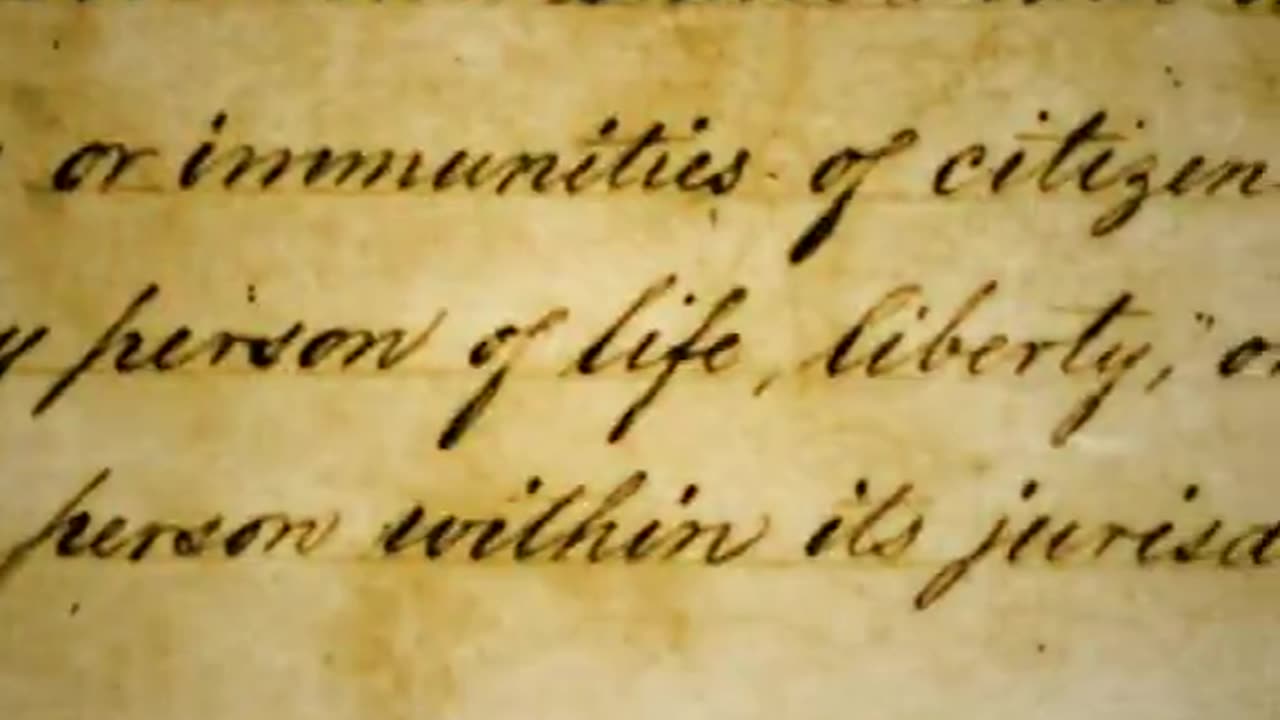 or immunities of citizen
y person of life, liberty, or
person within its jurisd